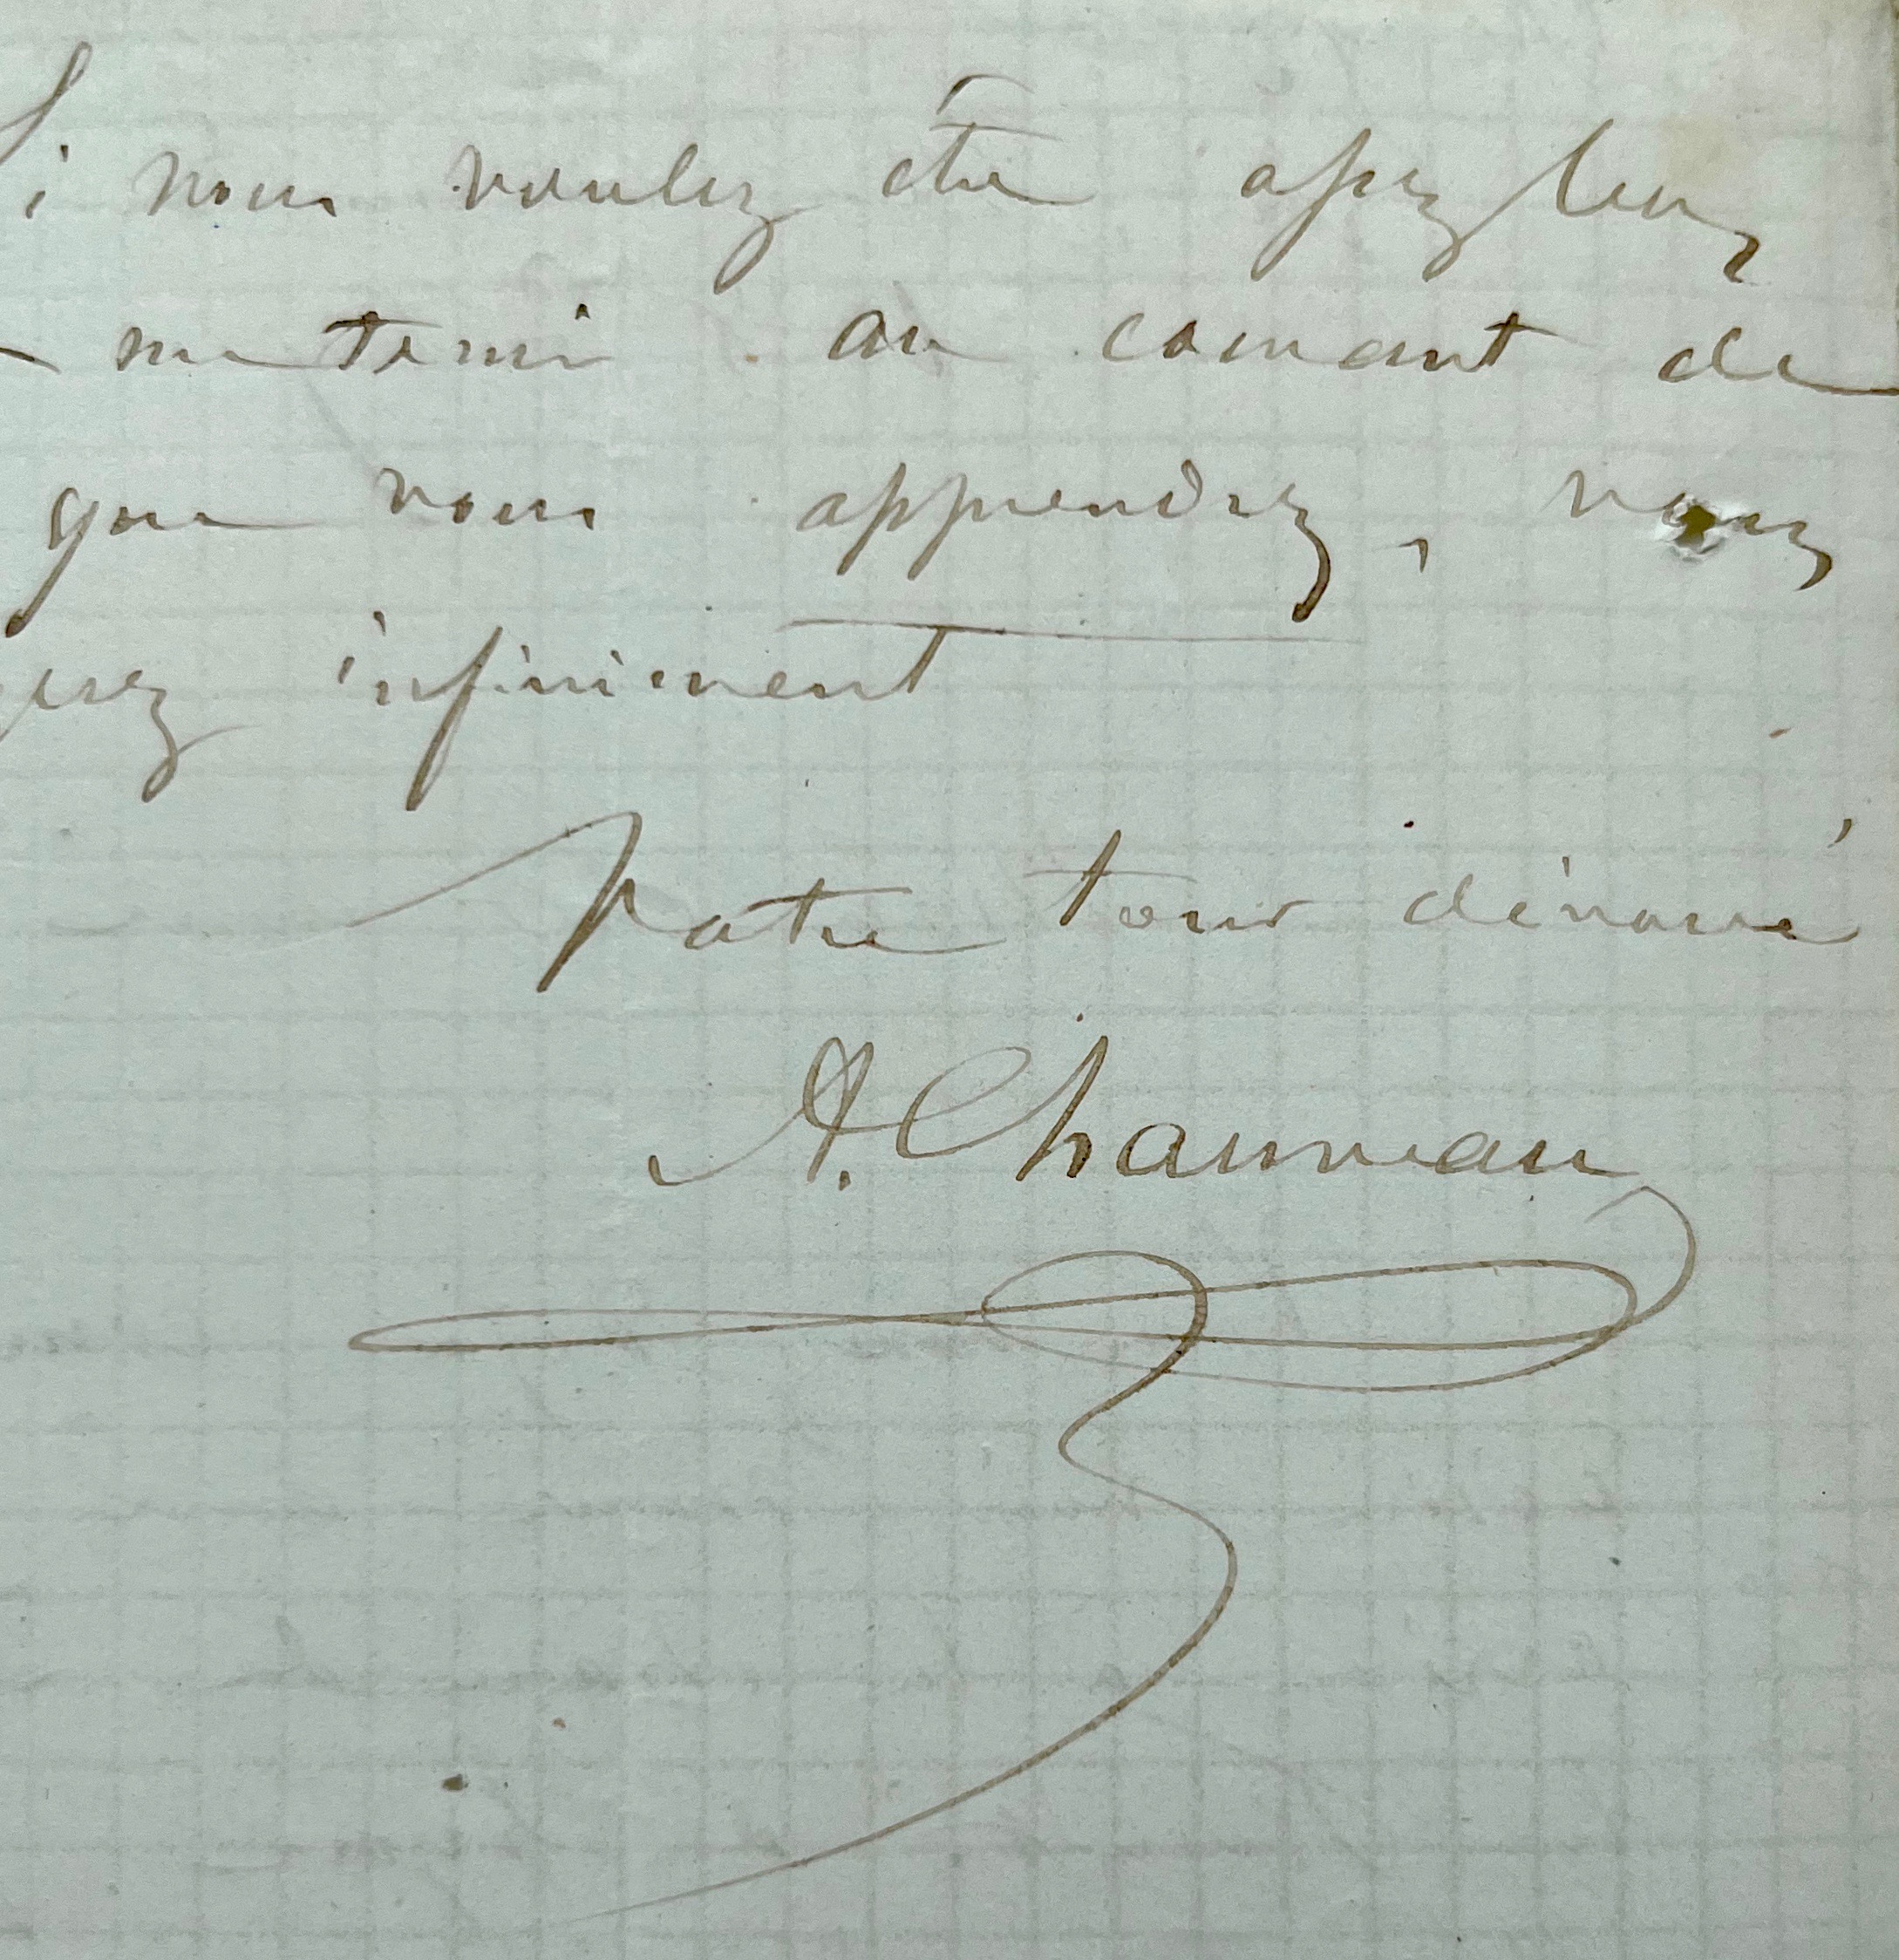 Si vous voulez être assez bon,
me tenir au courant de
que vous apprendrez, vous
gerez infiniment
Votre tout dévoué
A. Chauveau